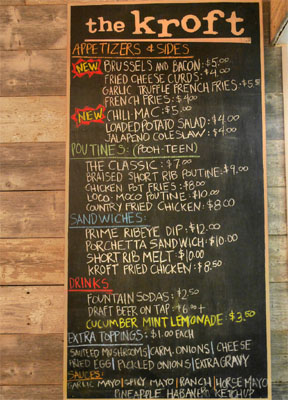 the kroft
APPETIZERS & SIDES
NEW BRUSSELS AND BACON: $5.00
FRIED CHEESE CURDS: $4.00
GARLIC TRUFFLE FRENCH FRIES: $5.50
FRENCH FRIES: $4.00
NEW CHILI MAC: $5.00
LOADED POTATO SALAD: $4.00
JALAPENO COLESLAW: $4.00
POUTINES: (POOH-TEEN)
THE CLASSIC: $7.00
BRAISED SHORT RIB POUTINE: $9.00
CHICKEN POT FRIES: $8.00
LOCO MOCO POUTINE: $10.00
COUNTRY FRIED CHICKEN: $8.00
SANDWICHES:
PRIME RIBEYE DIP: $12.00
PORCHETTA SANDWICH: $10.00
SHORT RIB MELT: $10.00
KROFT FRIED CHICKEN: $8.50
DRINKS
FOUNTAIN SODAS: $2.50
DRAFT BEER ON TAP: $6.00+
CUCUMBER MINT LEMONADE: $3.50
EXTRA TOPPINGS: $1.00 EACH
SAUTEED MUSHROOMS | CARM. ONIONS | CHEESE
FRIED EGG | PICKLED ONIONS | EXTRA GRAVY
SAUCES:
GARLIC MAYO | SPICY MAYO | RANCH | HORSE MAYO
PINEAPPLE HABANERO KETCHUP